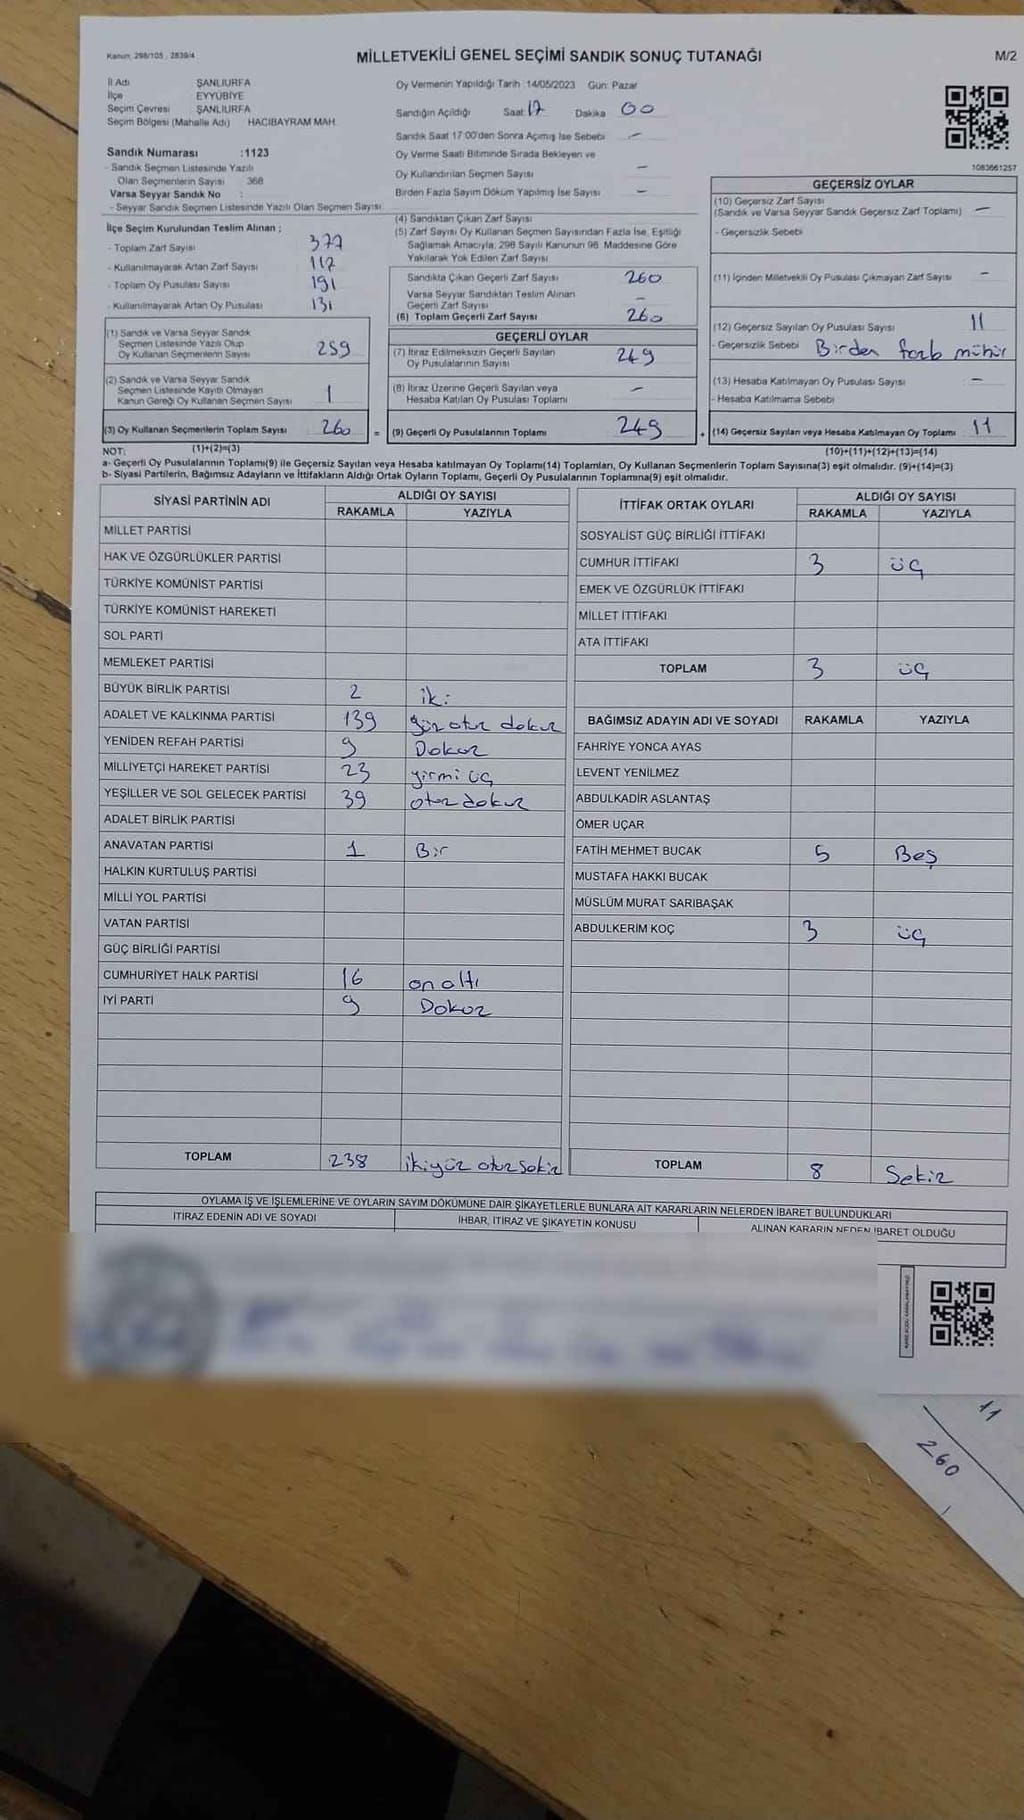 Kanun: 298/105 , 2839/4
MİLLETVEKİLİ GENEL SEÇİMİ SANDIK SONUÇ TUTANAĞI
M/2
İl Adı ŞANLIURFA
İlçe EYYÜBİYE
Seçim Çevresi ŞANLIURFA
Seçim Bölgesi (Mahalle Adı) HACIBAYRAM MAH.
Sandık Numarası :1123
- Sandık Seçmen Listesinde Yazılı
Olan Seçmenlerin Sayısı 368
Varsa Seyyar Sandık No :
- Seyyar Sandık Seçmen Listesinde Yazılı Olan Seçmen Sayısı
Oy Vermenin Yapıldığı Tarih :14/05/2023 Gün: Pazar
Sandığın Açıldığı Saat: 17 Dakika 00
Sandık Saat 17:00'den Sonra Açımış İse Sebebi –
Oy Verme Saati Bitiminde Sırada Bekleyen ve
Oy Kullandırılan Seçmen Sayısı –
Birden Fazla Sayım Döküm Yapılmış İse Sayısı –
1083661257
İlçe Seçim Kurulundan Teslim Alınan ;
- Toplam Zarf Sayısı 377
- Kullanılmayarak Artan Zarf Sayısı 117
- Toplam Oy Pusulası Sayısı 191
- Kullanılmayarak Artan Oy Pusulası 131
(1) Sandık ve Varsa Seyyar Sandık
Seçmen Listesinde Yazılı Olup
Oy Kullanan Seçmenlerin Sayısı 259
(2) Sandık ve Varsa Seyyar Sandık
Seçmen Listesinde Kayıtlı Olmayan
Kanun Gereği Oy Kullanan Seçmen Sayısı 1
(3) Oy Kullanan Seçmenlerin Toplam Sayısı 260 =
(4) Sandıktan Çıkan Zarf Sayısı
(5) Zarf Sayısı Oy Kullanan Seçmen Sayısından Fazla İse, Eşitliği
Sağlamak Amacıyla, 298 Sayılı Kanunun 98. Maddesine Göre
Yakılarak Yok Edilen Zarf Sayısı
Sandıkta Çıkan Geçerli Zarf Sayısı 260
Varsa Seyyar Sandıktan Teslim Alınan
Geçerli Zarf Sayısı –
(6) Toplam Geçerli Zarf Sayısı 260
GEÇERLİ OYLAR
(7) İtiraz Edilmeksizin Geçerli Sayılan
Oy Pusulalarının Sayısı 249
(8) İtiraz Üzerine Geçerli Sayılan veya
Hesaba Katılan Oy Pusulası Toplamı –
(9) Geçerli Oy Pusulalarının Toplamı 249 +
GEÇERSİZ OYLAR
(10) Geçersiz Zarf Sayısı
(Sandık ve Varsa Seyyar Sandık Geçersiz Zarf Toplamı) –
- Geçersizlik Sebebi
(11) İçinden Milletvekili Oy Pusulası Çıkmayan Zarf Sayısı –
(12) Geçersiz Sayılan Oy Pusulası Sayısı 11
- Geçersizlik Sebebi Birden fazla mühür
(13) Hesaba Katılmayan Oy Pusulası Sayısı –
- Hesaba Katılmama Sebebi
(14) Geçersiz Sayılan veya Hesaba Katılmayan Oy Toplamı 11
NOT: (1)+(2)=(3) (10)+(11)+(12)+(13)=(14)
a- Geçerli Oy Pusulalarının Toplamı(9) ile Geçersiz Sayılan veya Hesaba katılmayan Oy Toplamı(14) Toplamları, Oy Kullanan Seçmenlerin Toplam Sayısına(3) eşit olmalıdır. (9)+(14)=(3)
b- Siyasi Partilerin, Bağımsız Adayların ve İttifakların Aldığı Ortak Oyların Toplamı, Geçerli Oy Pusulalarının Toplamına(9) eşit olmalıdır.
SİYASİ PARTİNİN ADI ALDIĞI OY SAYISI
RAKAMLA YAZIYLA
MİLLET PARTİSİ
HAK VE ÖZGÜRLÜKLER PARTİSİ
TÜRKİYE KOMÜNİST PARTİSİ
TÜRKİYE KOMÜNİST HAREKETİ
SOL PARTİ
MEMLEKET PARTİSİ
BÜYÜK BİRLİK PARTİSİ 2 iki
ADALET VE KALKINMA PARTİSİ 139 yüz otuz dokuz
YENİDEN REFAH PARTİSİ 9 Dokuz
MİLLİYETÇİ HAREKET PARTİSİ 23 yirmi üç
YEŞİLLER VE SOL GELECEK PARTİSİ 39 otuz dokuz
ADALET BİRLİK PARTİSİ
ANAVATAN PARTİSİ 1 Bir
HALKIN KURTULUŞ PARTİSİ
MİLLİ YOL PARTİSİ
VATAN PARTİSİ
GÜÇ BİRLİĞİ PARTİSİ
CUMHURİYET HALK PARTİSİ 16 on altı
İYİ PARTİ 9 Dokuz
TOPLAM 238 ikiyüz otuz sekiz
İTTİFAK ORTAK OYLARI ALDIĞI OY SAYISI
RAKAMLA YAZIYLA
SOSYALİST GÜÇ BİRLİĞİ İTTİFAKI
CUMHUR İTTİFAKI 3 üç
EMEK VE ÖZGÜRLÜK İTTİFAKI
MİLLET İTTİFAKI
ATA İTTİFAKI
TOPLAM 3 üç
BAĞIMSIZ ADAYIN ADI VE SOYADI RAKAMLA YAZIYLA
FAHRİYE YONCA AYAS
LEVENT YENİLMEZ
ABDULKADİR ASLANTAŞ
ÖMER UÇAR
FATİH MEHMET BUCAK 5 Beş
MUSTAFA HAKKI BUCAK
MÜSLÜM MURAT SARIBAŞAK
ABDULKERİM KOÇ 3 üç
TOPLAM 8 Sekiz
OYLAMA İŞ VE İŞLEMLERİNE VE OYLARIN SAYIM DÖKÜMÜNE DAİR ŞİKAYETLERLE BUNLARA AİT KARARLARIN NELERDEN İBARET BULUNDUKLARI
İTİRAZ EDENİN ADI VE SOYADI İHBAR, İTİRAZ VE ŞİKAYETİN KONUSU ALINAN KARARIN NEDEN İBARET OLDUĞU
11
260